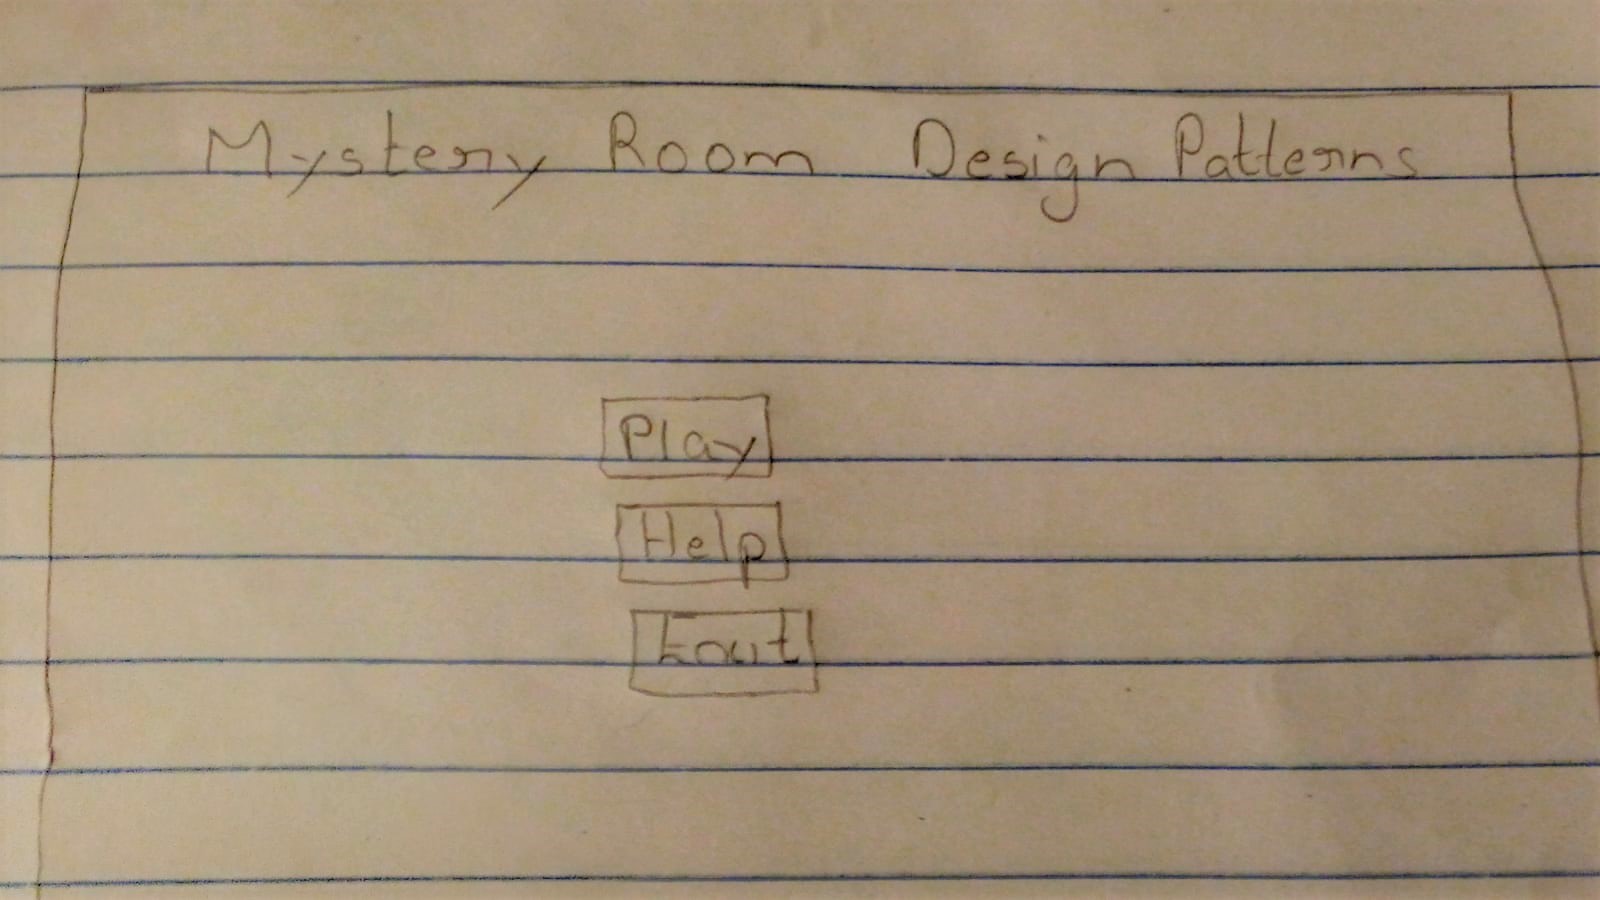 Mystery Room Design Patterns
Play
Help
Exit